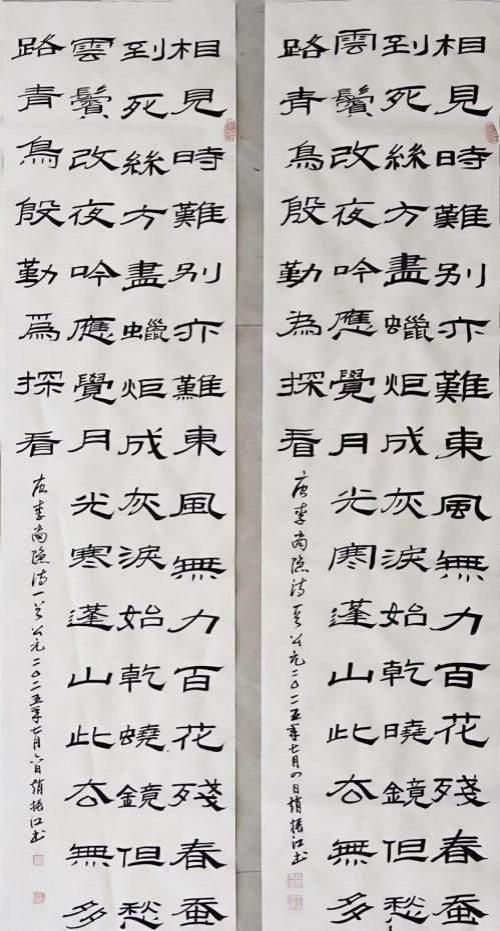 相見時難別亦難東風無力百花殘春蚕
到死絲方盡蠟炬成灰淚始乾曉鏡但愁
雲鬢改夜吟應覺月光寒蓬山此去無多
路青鳥殷勤为探看
唐李商隱詩一首公元二〇二五年七月四日趙振江書
相見時難別亦難東風無力百花殘春蚕
到死絲方盡蠟炬成灰淚始乾蟯鏡但愁
雲鬢改夜吟應覺月光寒蓬山此去無多
路青鳥殷勤爲探看
李商隱詩一首公元二〇二五年七月日趙振江書